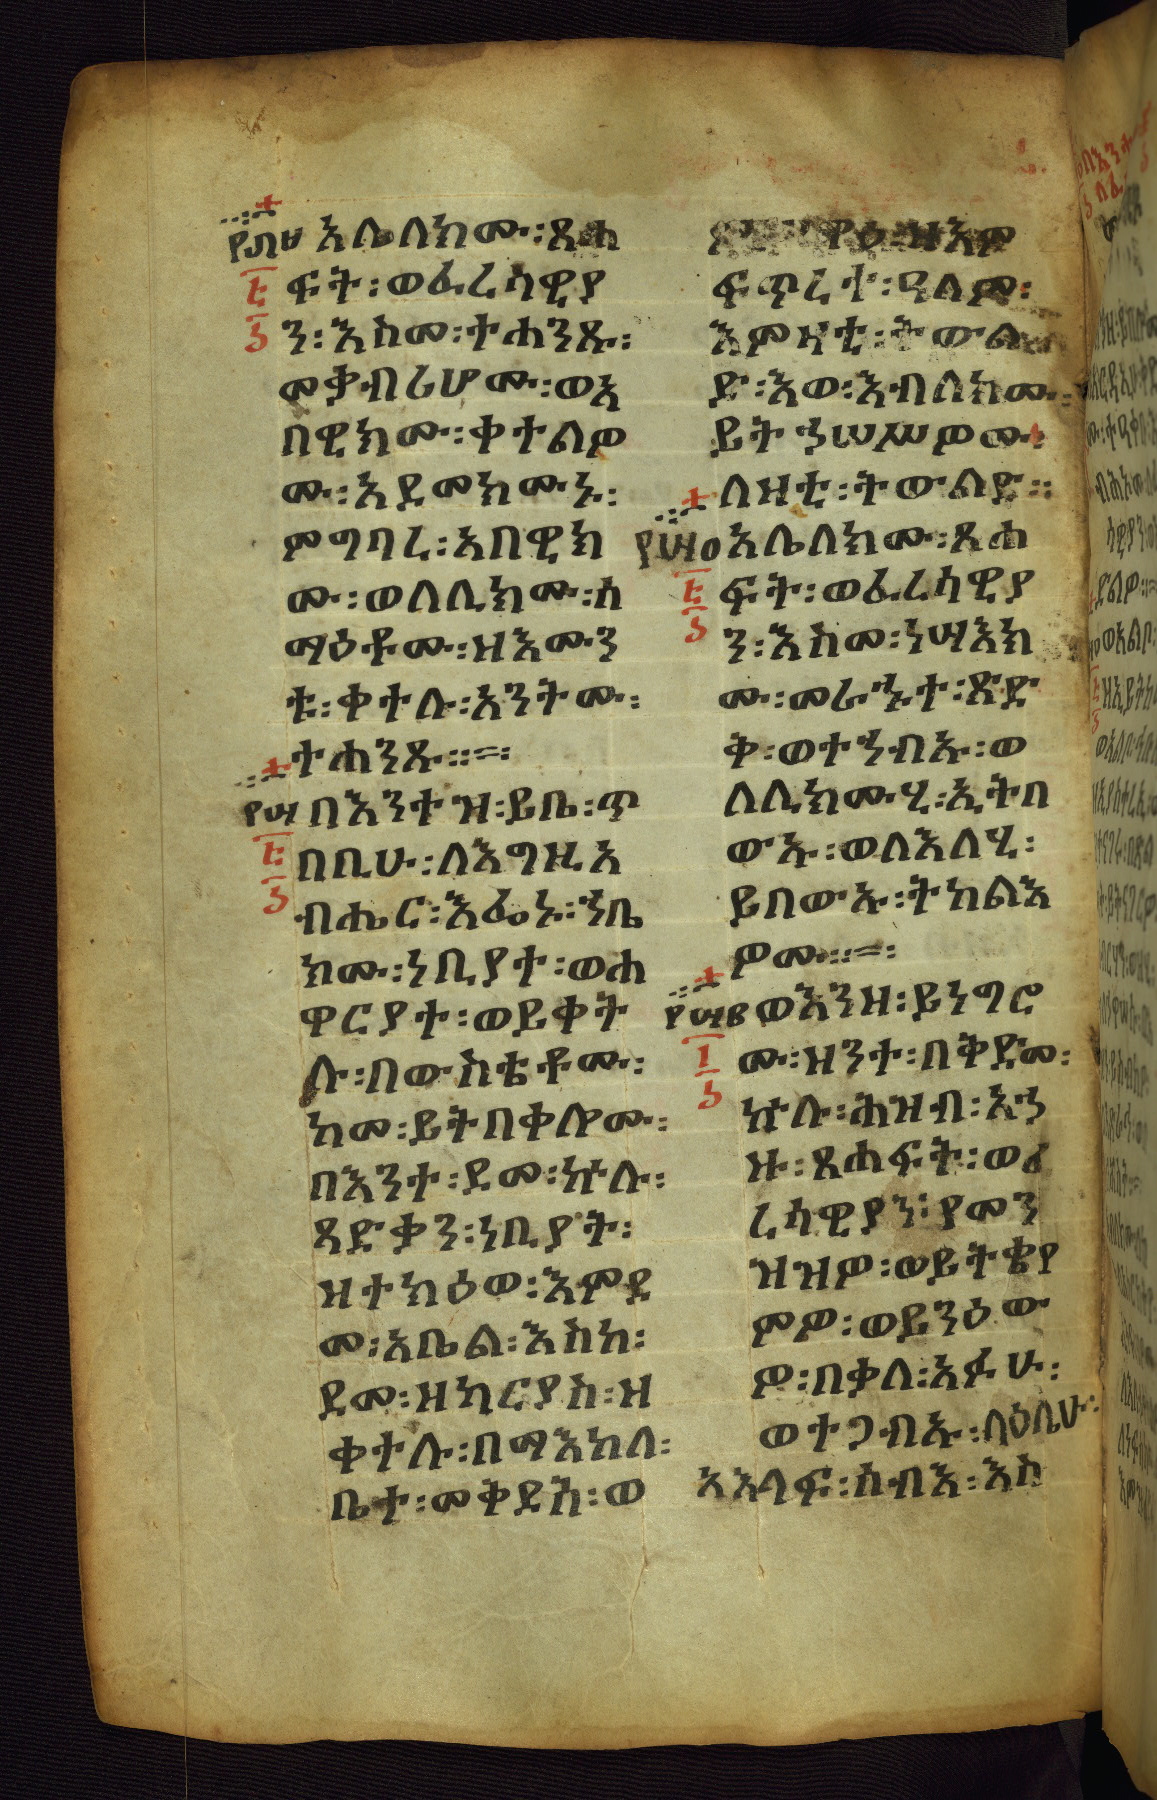 አሌ፡ለክሙ፡ጸሐ
ፍት፡ወፈሪሳዊያ
ን፡እስመ፡ተሐንጹ፡
መቃብሪሆሙ፡ወአ
በዊክሙ፡ቀተልዎ
ሙ፡አደመክሙኑ፡
ምግባረ፡አበዊክ
ሙ፡ወለሊክሙ፡ሰ
ማዕቶሙ፡ዘእሙን
ቱ፡ቀተሉ፡አንትሙ፡
ተሐንጹ።
በእንተ፡ዝ፡ይቤ፡ጥ
በቢሁ፡ለእግዚአ
ብሔር፡እፌኑ፡ኀቤ
ክሙ፡ነቢያተ፡ወሐ
ዋርያተ፡ወይቀት
ሉ፡በውስቴቶሙ፡
ከመ፡ይትበቀሎሙ፡
በእንተ፡ደመ፡ኵሉ፡
ጻድቃን፡ነቢያት፡
ዝተክዕወ፡እምደ
መ፡አቤል፡እስከ፡
ደመ፡ዘካርያስ፡ዘ
ቀተሉ፡በማእከለ፡
ቤተ፡መቅደስ፡ወ
ፍጥረተ፡ዓለም፡
እምዛቲ፡ትውል
ድ፡እወ፡እብለክሙ፡
ይትኀሠሥዎሙ፡
ለዝቲ፡ትውልድ።
አሌ፡ለክሙ፡ጸሐ
ፍት፡ወፈሪሳዊያ
ን፡እስመ፡ነሣእክ
ሙ፡መራኁተ፡ጽድ
ቅ፡ወተኀብኡ፡ወ
ለሊክሙሂ፡ኢትበ
ውኡ፡ወለእለሂ፡
ይበውኡ፡ትከልእ
ዎሙ።
ወእንዘ፡ይነግሮ
ሙ፡ዝንተ፡በቅድመ፡
ኵሉ፡ሕዝብ፡አኀ
ዙ፡ጸሐፍት፡ወፈ
ሪሳዊያን፡ያመን
ዝዝዎ፡ወይትቄየ
ምዎ፡ወይንዕው
ዎ፡በቃለ፡አፉሁ፡
ወተጋብኡ፡ላዕሌሁ፡
አእላፍ፡ሰብእ፡እስ